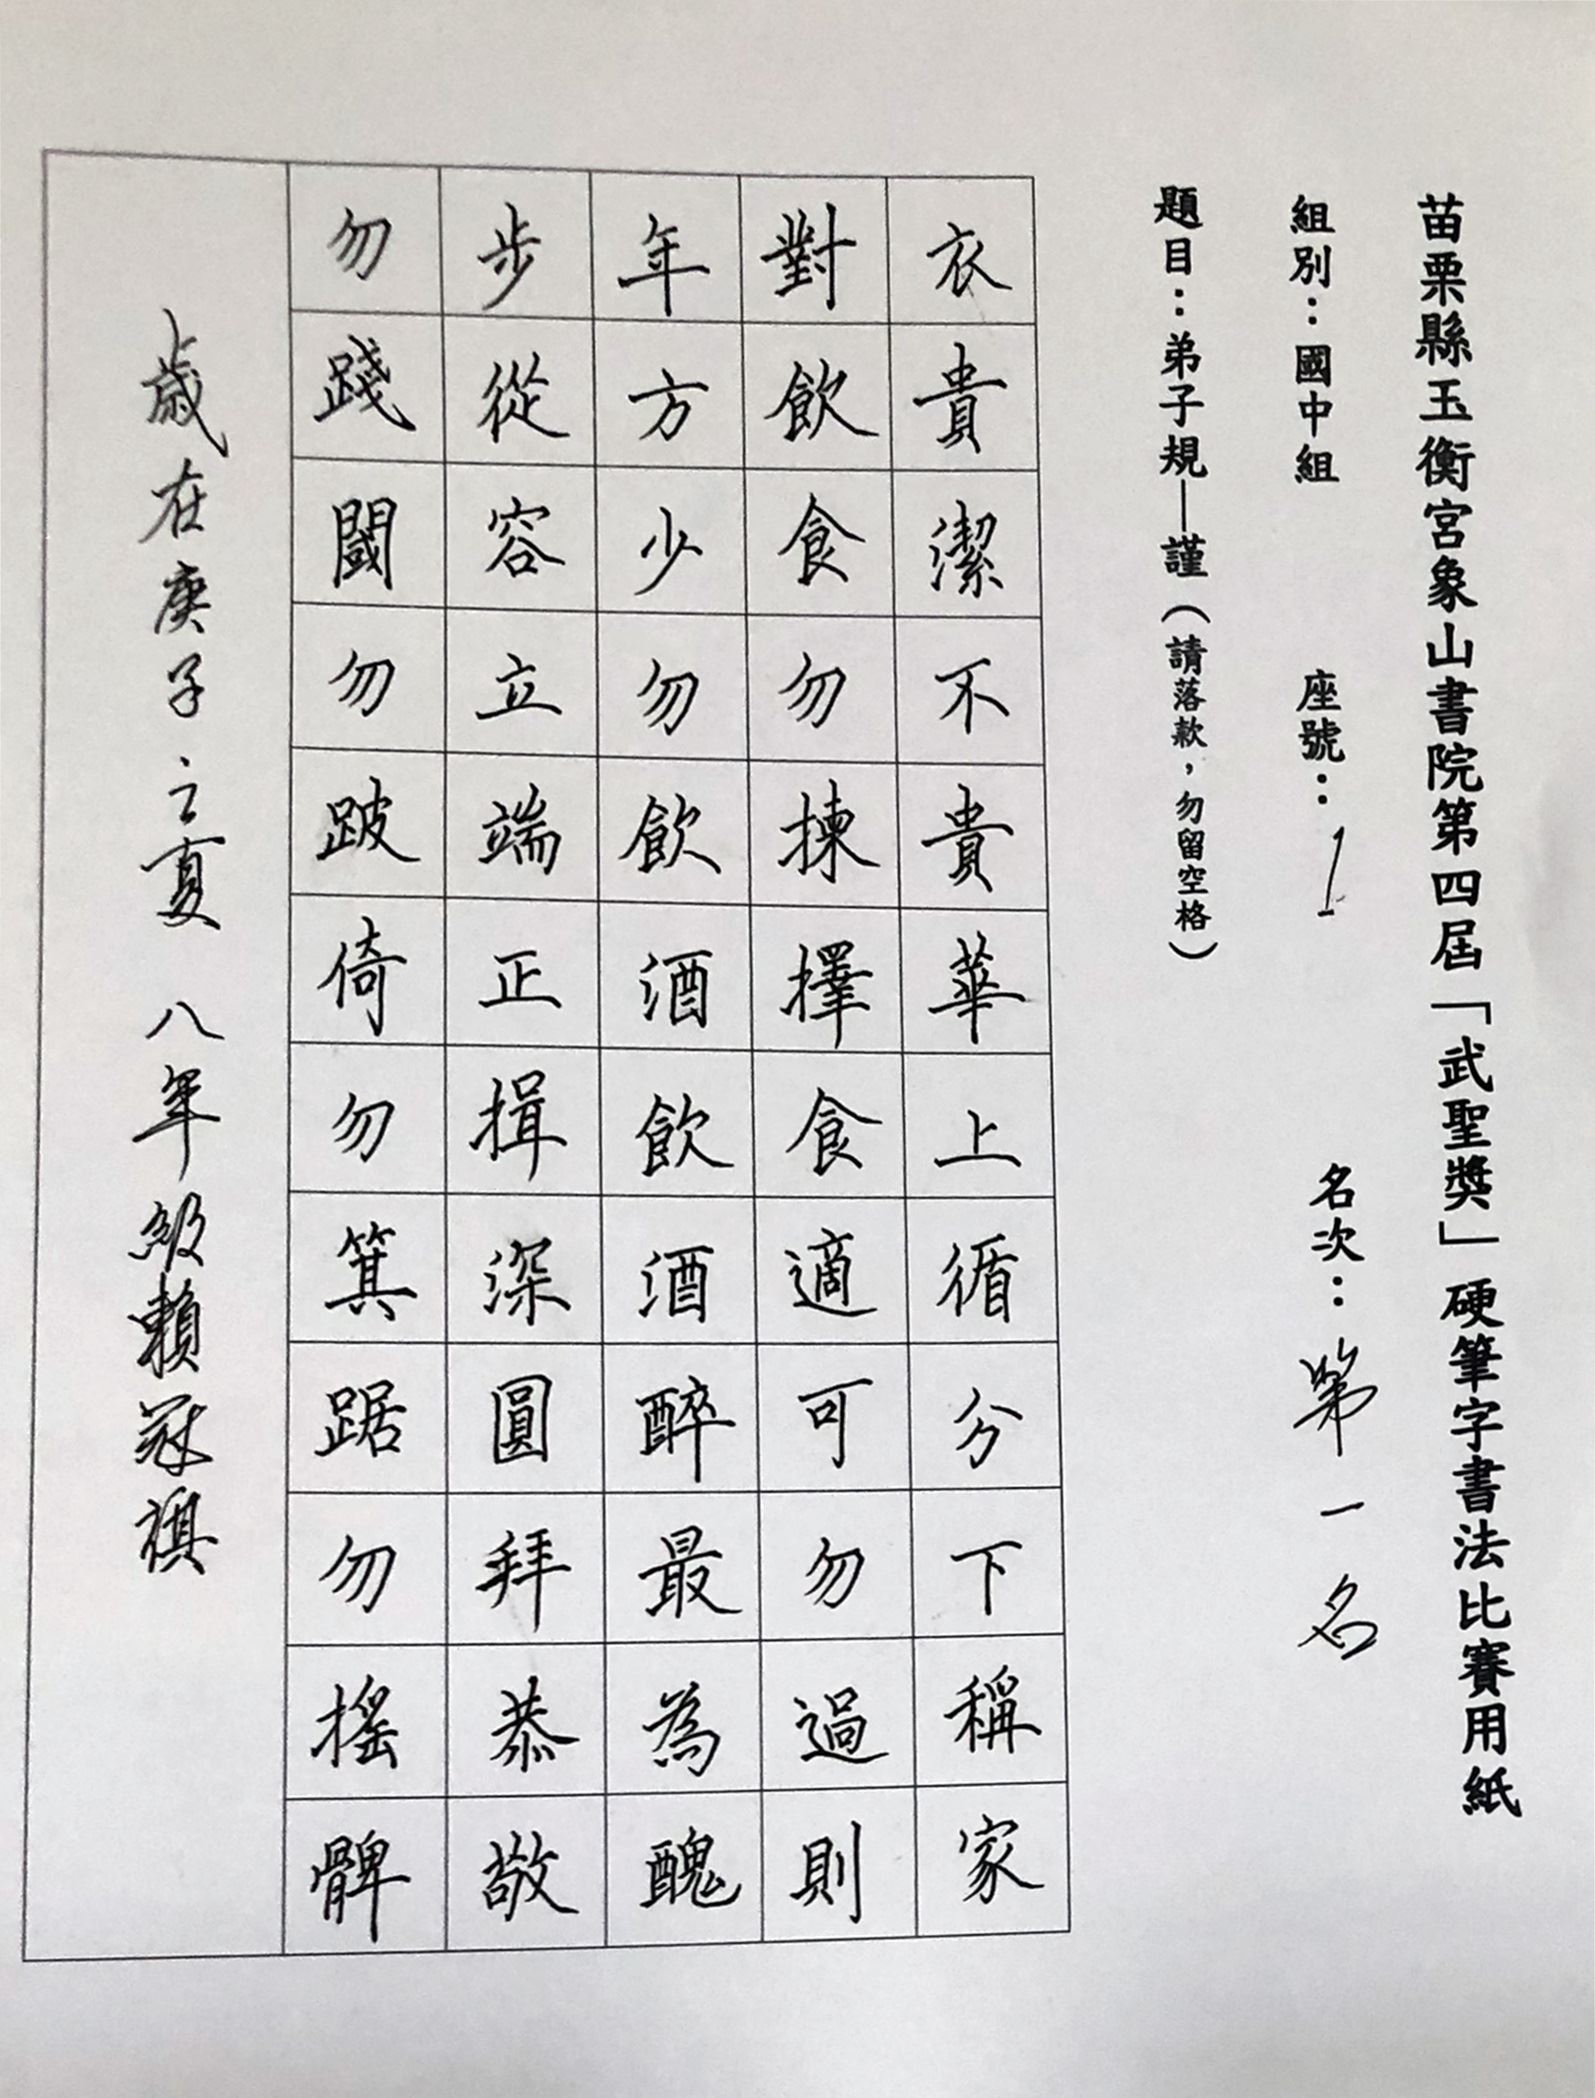 苗栗縣玉衡宮象山書院第四屆「武聖獎」硬筆字書法比賽用紙
組別：國中組　座號：1　名次：第一名
題目：弟子規—謹（請落款，勿留空格）
衣貴潔不貴華上循分下稱家
對飲食勿揀擇食適可勿過則
年方少勿飲酒飲酒醉最為醜
步從容立端正揖深圓拜恭敬
勿踐閾勿跛倚勿箕踞勿搖髀
歲在庚子之夏 八年級賴冠禩